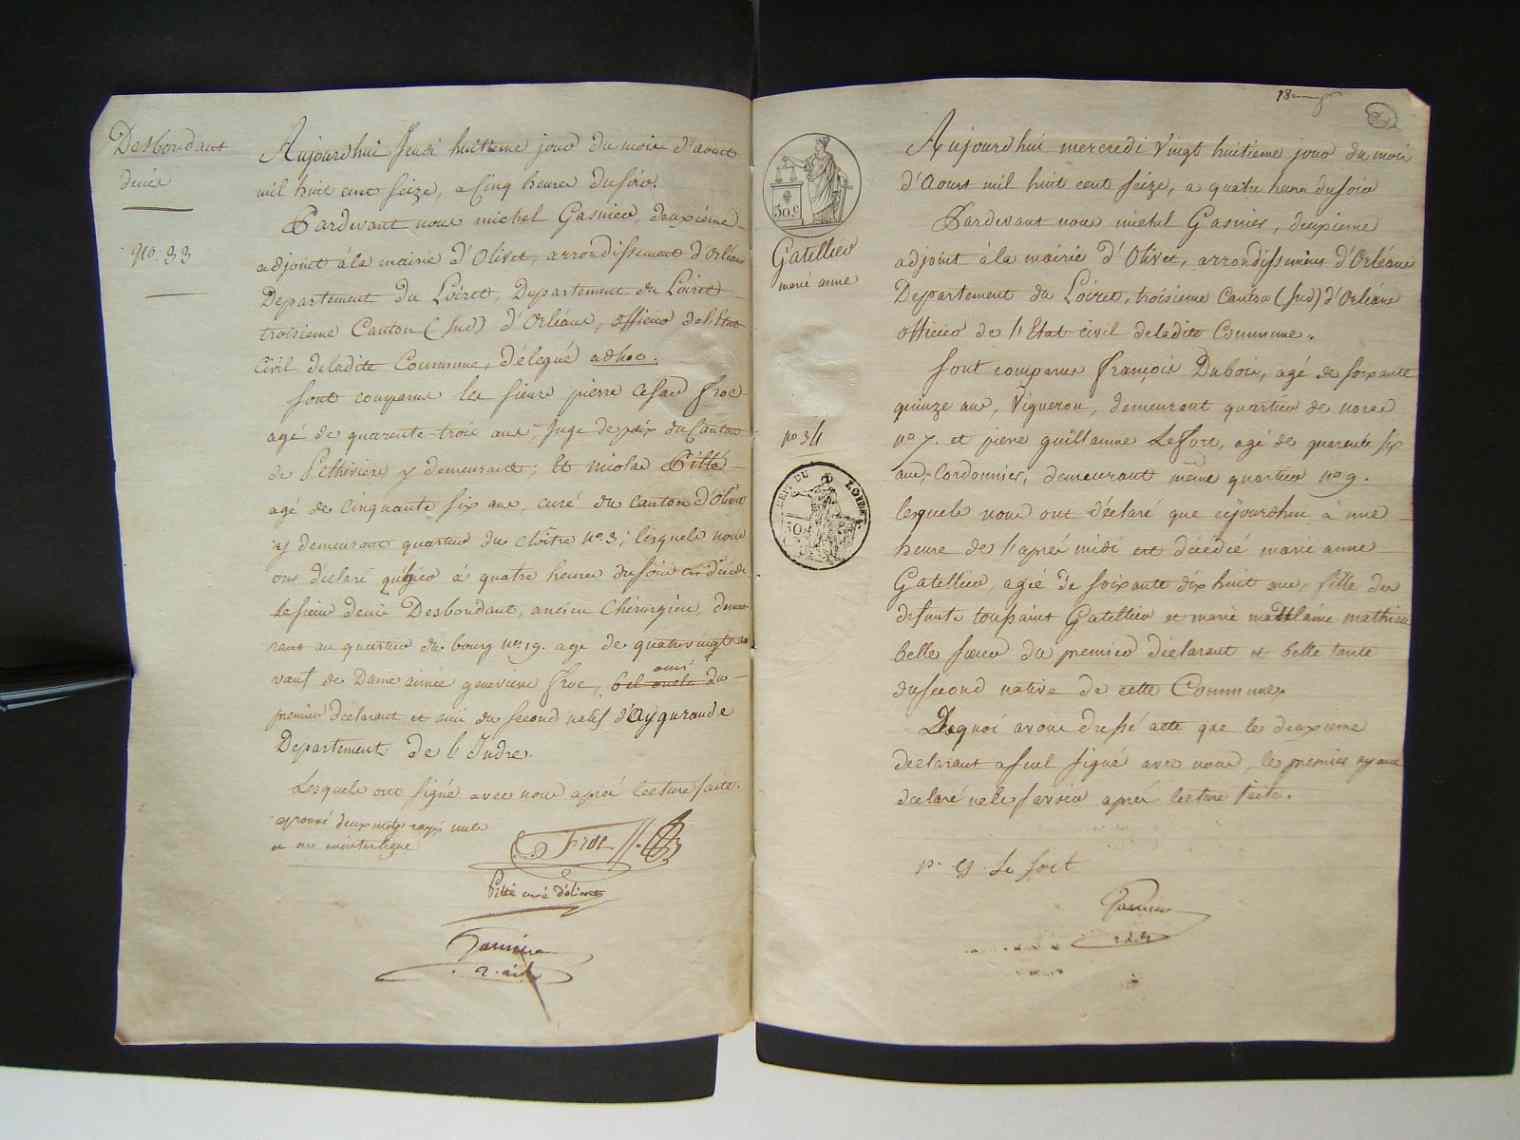 Desbondant
denis
no. 33
Aujourdhui Jeudi huitieme jour du mois d'aout
mil huit cent seize, a Cinq heures du soir.
Pardevant nous michel Gasnier, deuxieme
adjoint à la mairie d'Olivet, arrondissement d'Orléans
Departement du Loiret, Departement du Loiret
troisieme Canton (sud) d'Orléans, officier de l'Etat
Civil deladite Commune, délegué adhoc.
sont comparus les sieurs pierre Cesar froc
agé de quarente-trois ans, Juge de paix du Canton
de Pethiviers y demeurant; Et nicolas Pillé
agé de cinquante six ans, curé du canton d'Olivet
y demeurant quartier du cloître no. 3; lesquels nous
ont déclaré qu'hier à quatre heures du soir est décédé
le sieur denis Desbondant, ancien Chirurgien, demeu
rant au quartier du bourg no. 19. agé de quatrevingt
veuf de Dame aimée genevieve froc, bel oncle du
ami
premier déclarant et ami du second natif d'Aygurande
Departement de l'Indre.
Lesquels ont signé avec nous aprés lecture faite.
aprouvé deux mots rayés nuls
et un interligne
Froc
Pillé curé d'olivet
Gasnier
2. adj
30 c
Gatellier
marie anne
no 34
DEP. DU LOIRET
Aujourdhui mercredi Vingt huitieme jour du mois
d'Aoust mil huit cent seize, a quatre heures du soir
Pardevant nous michel Gasnier, deuxieme
adjoint à la mairie d'Olivet, arrondissement d'Orléans
Departement du Loiret, troisieme Canton (sud) d'Orléans
officier de l'Etat civil deladite Commune.
sont comparus françois Dubois, agé de soixante
quinze ans, Vigneron, demeurant quartier de
no 7. et pierre guillaume Lefort, agé de quarente six
ans, Cordonnier, demeurant même quartier no 9.
lesquels nous ont déclaré que cejourdhui à une
heure de l'aprés midi est décédé marie anne
Gatellier, agée de soixante dix huit ans, fille des
defunts toussaint Gatellier et marie madelaine mathieu
belle soeur du premier déclarant et belle tante
du second native de cette Commune,
Dequoi avons dressé acte que le deuxieme
declarant a seul signé avec nous, le premier ayant
déclaré ne le savoir aprés lecture faite.
p. G Le fort
Gasnier
2 adj